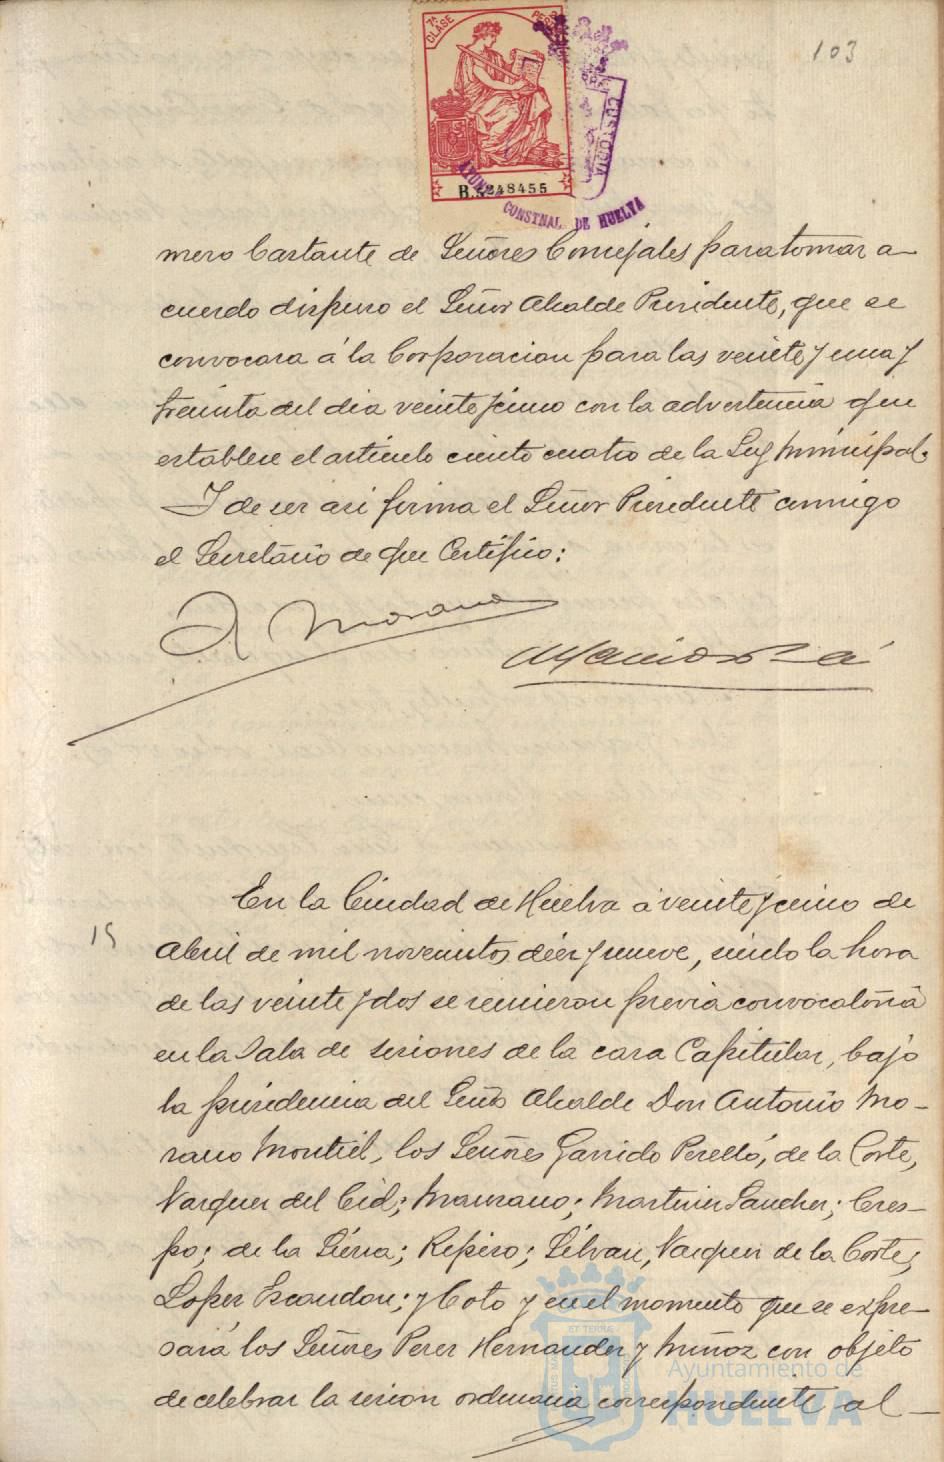 103
7ª CLASE
B.5248455
CUSTODIA
AYUNT.
CONSTNAL. DE HUELVA
mero bastante de Señores Concejales para tomar a-
cuerdo dispuso el Señor Alcalde Presidente, que se
convocara á la Corporacion para las veinte y una y
treinta del dia veinte y cinco con la advertencia que
establece el artículo ciento cuatro de la Ley Municipal.
Y de ser asi firma el Señor Presidente conmigo
el Secretario de que Certifico:
A Morano
15
En la Ciudad de Huelva á veinte y cinco de
Abril de mil novecientos diez y nueve, siendo la hora
de las veinte y dos se reunieron previa convocatoria
en la Sala de sesiones de la casa Capitular, bajo
la presidencia del Señor Alcalde Don Antonio Mo-
rano Montiel, los Señores Garrido Perelló, de la Corte,
Vazquez del Cid; Manzano; Martin Sanchez; Cres-
po; de la Sierra; Repiso; Silvan, Vazquez de la Corte;
Lopez Escandon; y Coto y en el momento que se expre-
sará los Señores Perez Hernandez y Muñoz con objeto
de celebrar la sesion ordinaria correspondiente al -
Ayuntamiento de
HUELVA